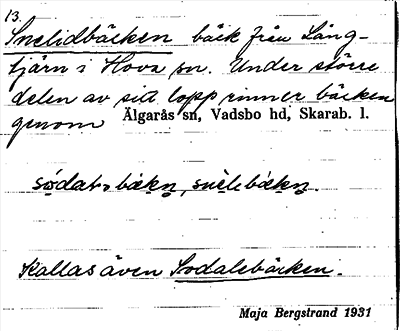 13.
Snelidbäcken bäck från Lång-
tjärn i Hova sn. Under större
delen av sitt lopp rinner bäcken
genom Älgarås sn, Vadsbo hd, Skarab. l.
Kallas även Sodalsbäcken.
Maja Bergstrand 1931